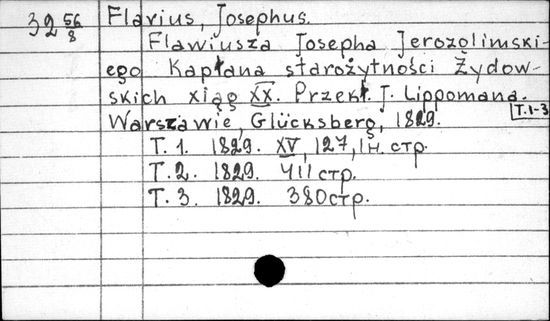 32 56/8
Flavius, Josephus.
Flawiusza Josepha Jerozolimski-
ego Kapłana starożytności Żydow-
skich xiąg XX. Przekł. J. Lippomana.
Warszawie, Glücksberg, 1829.
T. 1-3
T. 1. 1829. XV, 127, 1н. стр.
T. 2. 1829. 411 стр.
T. 3. 1829. 380 стр.